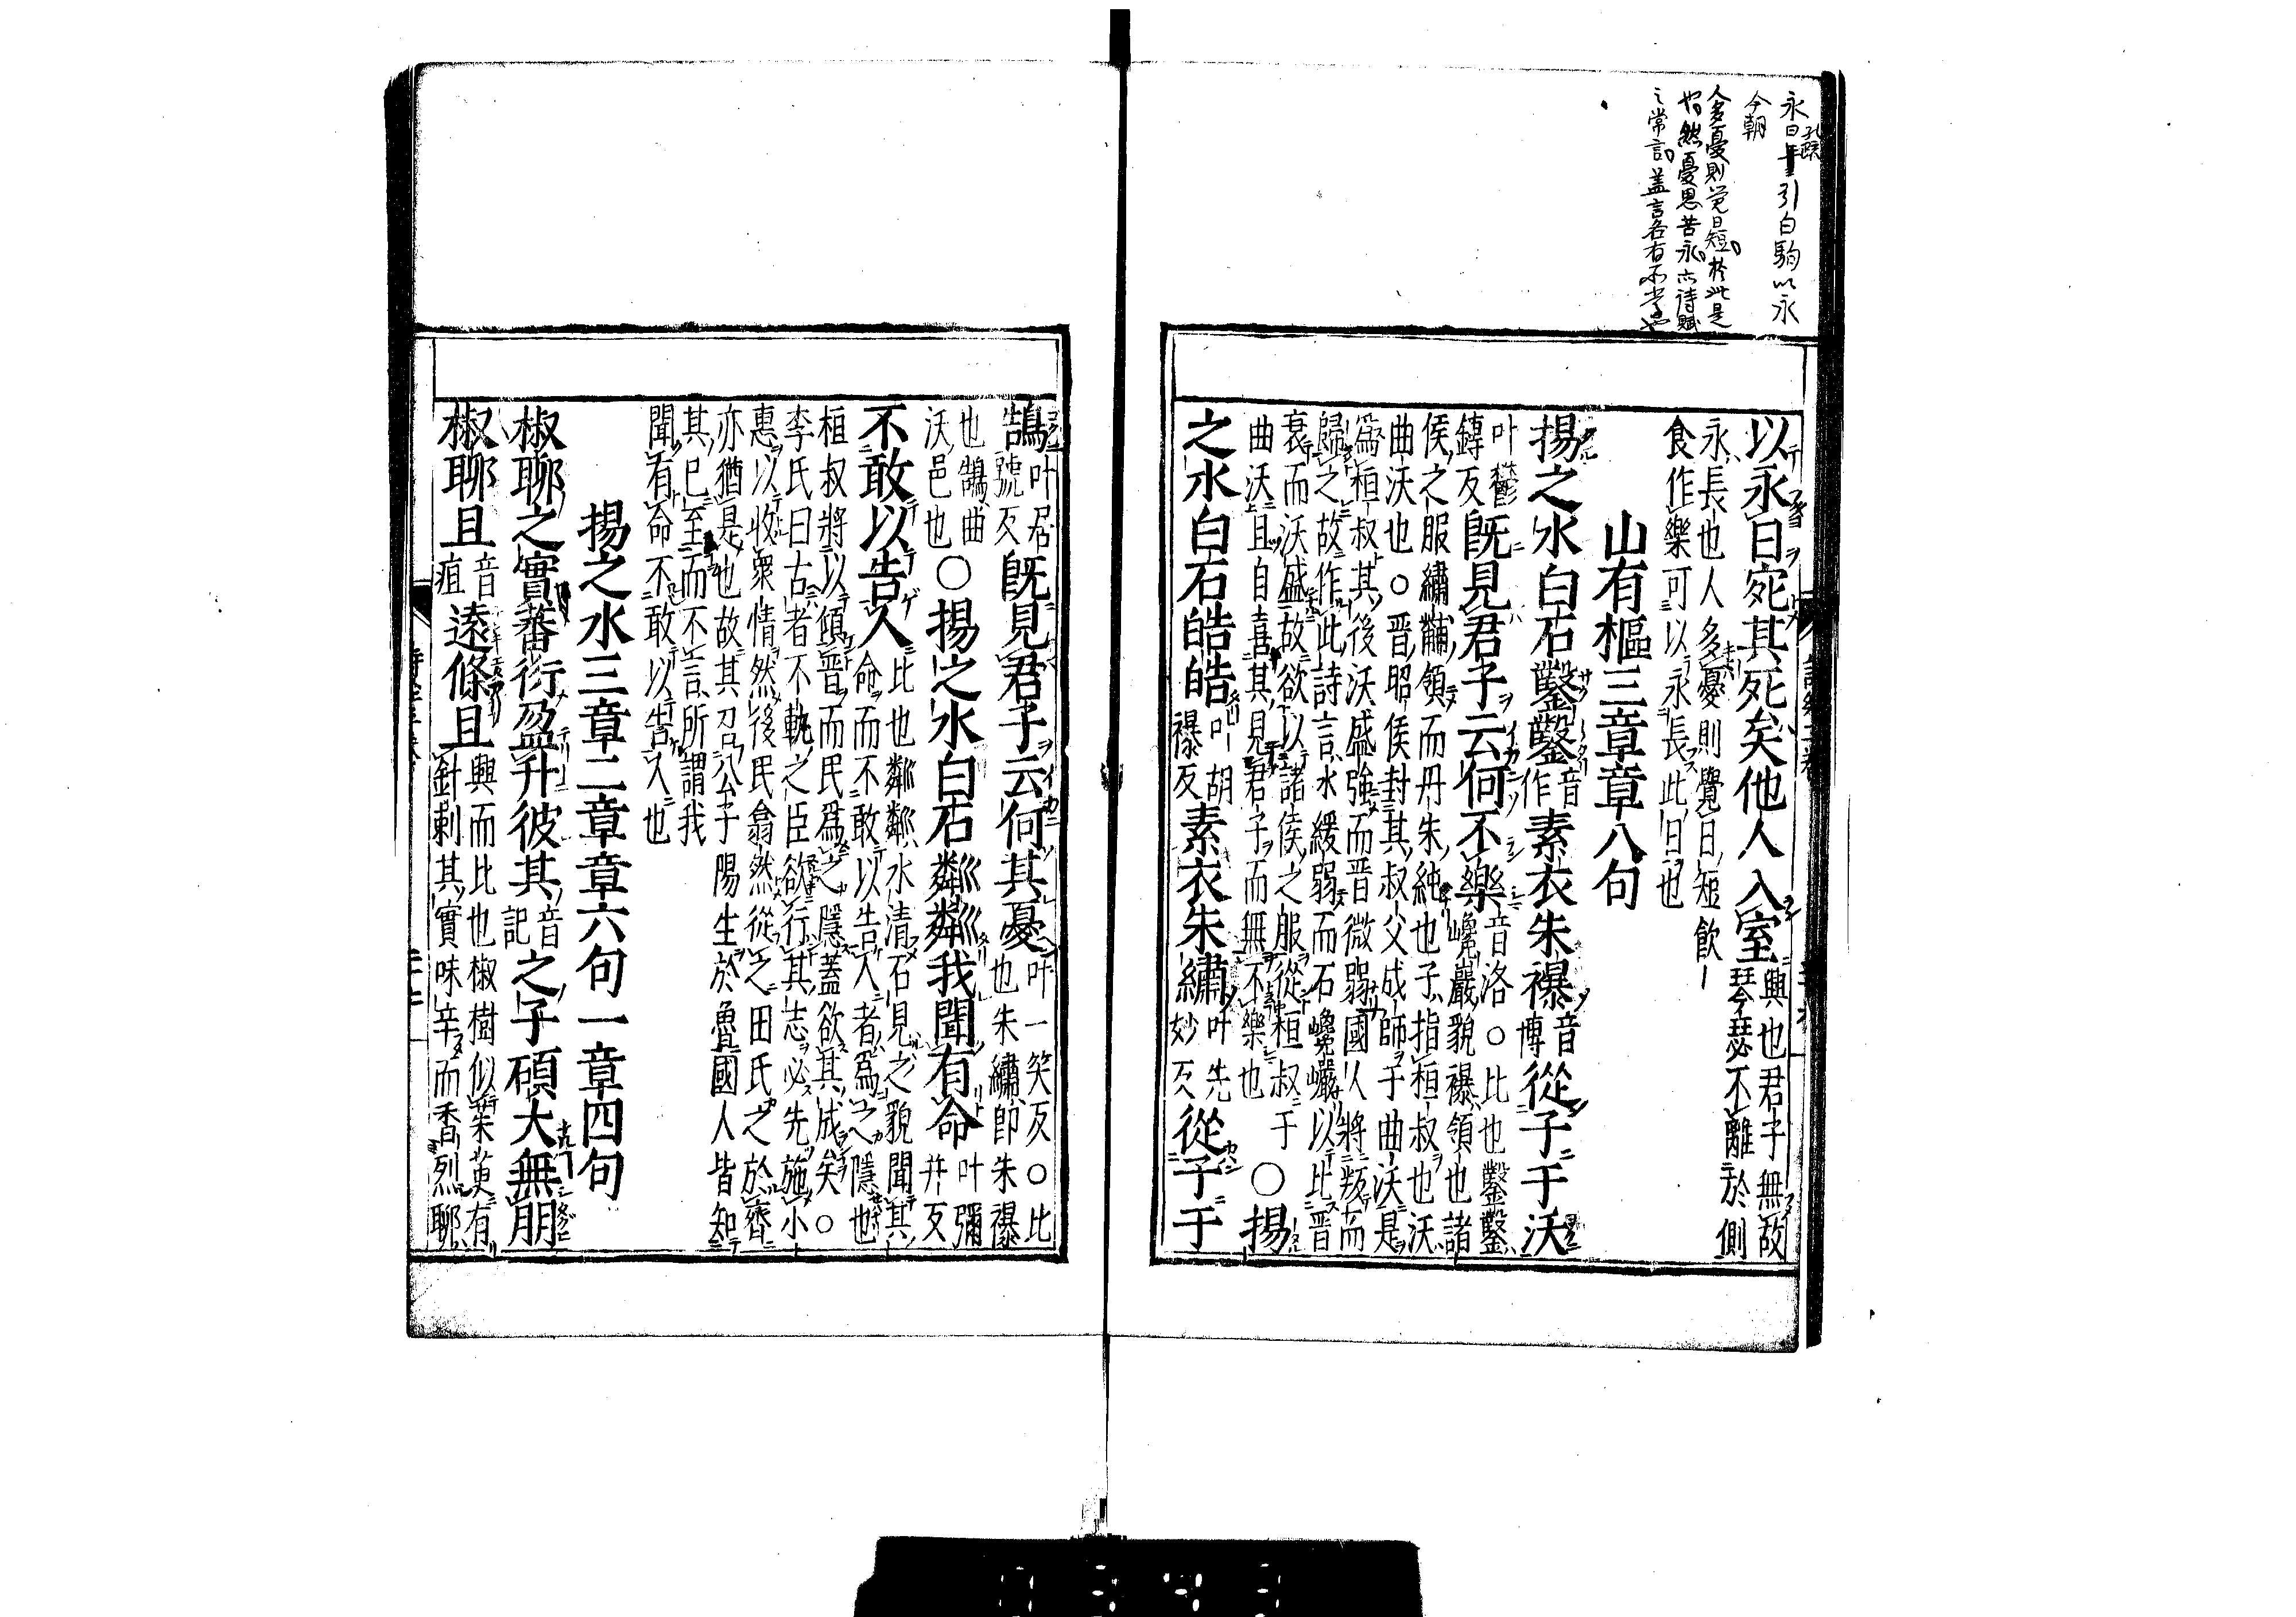 孔疏
永日
引白駒以永
今朝
人多憂則覚日短於此是
然憂思苦永亦詩賦
之常言蓋言各有不当也
以永日宛其死矣他人入室興也君子無故琴瑟不離於側
永長也人多憂則覺日短飲
食作樂可以永長此日也
山有樞三章章八句
揚之水白石鑿鑿音作素衣朱襮音博從子于沃
叶鬱鎛反既見君子云何不樂音洛○比也鑿鑿
巉巖貌襮領也諸
侯之服繡黼領而丹朱純也子指桓叔也沃
曲沃也○晉昭侯封其叔父成師于曲沃是
爲桓叔其後沃盛強而晉微弱國人將叛而
歸之故作此詩言水緩弱而石巉巖以比晉
衰而沃盛故欲以諸侯之服從桓叔于
曲沃且自喜其見君子而無不樂也○揚
之水白石皓皓叶胡襮反素衣朱繡叶先妙反從子于
鵠叶居號反既見君子云何其憂叶一笑反○比
也朱繡即朱襮
也鵠曲
沃邑也○揚之水白石粼粼我聞有命叶彌并反
不敢以告人比也粼粼水清石見之貌聞其
命而不敢以告人者爲之隱也
桓叔將以傾晉而民爲之隱蓋欲其成矣○
李氏曰古者不軌之臣欲行其志必先施小
惠以收衆情然後民翕然從之田氏之於齊
亦猶是也故其召公子陽生於魯國人皆知
其已至而不言所謂我
聞有命不敢以告人也
揚之水三章二章章六句一章四句
椒聊之實蕃衍盈升彼其音記之子碩大無朋
椒聊且音疽遠條且興而比也椒樹似茱萸有
針刺其實味辛而香烈聊